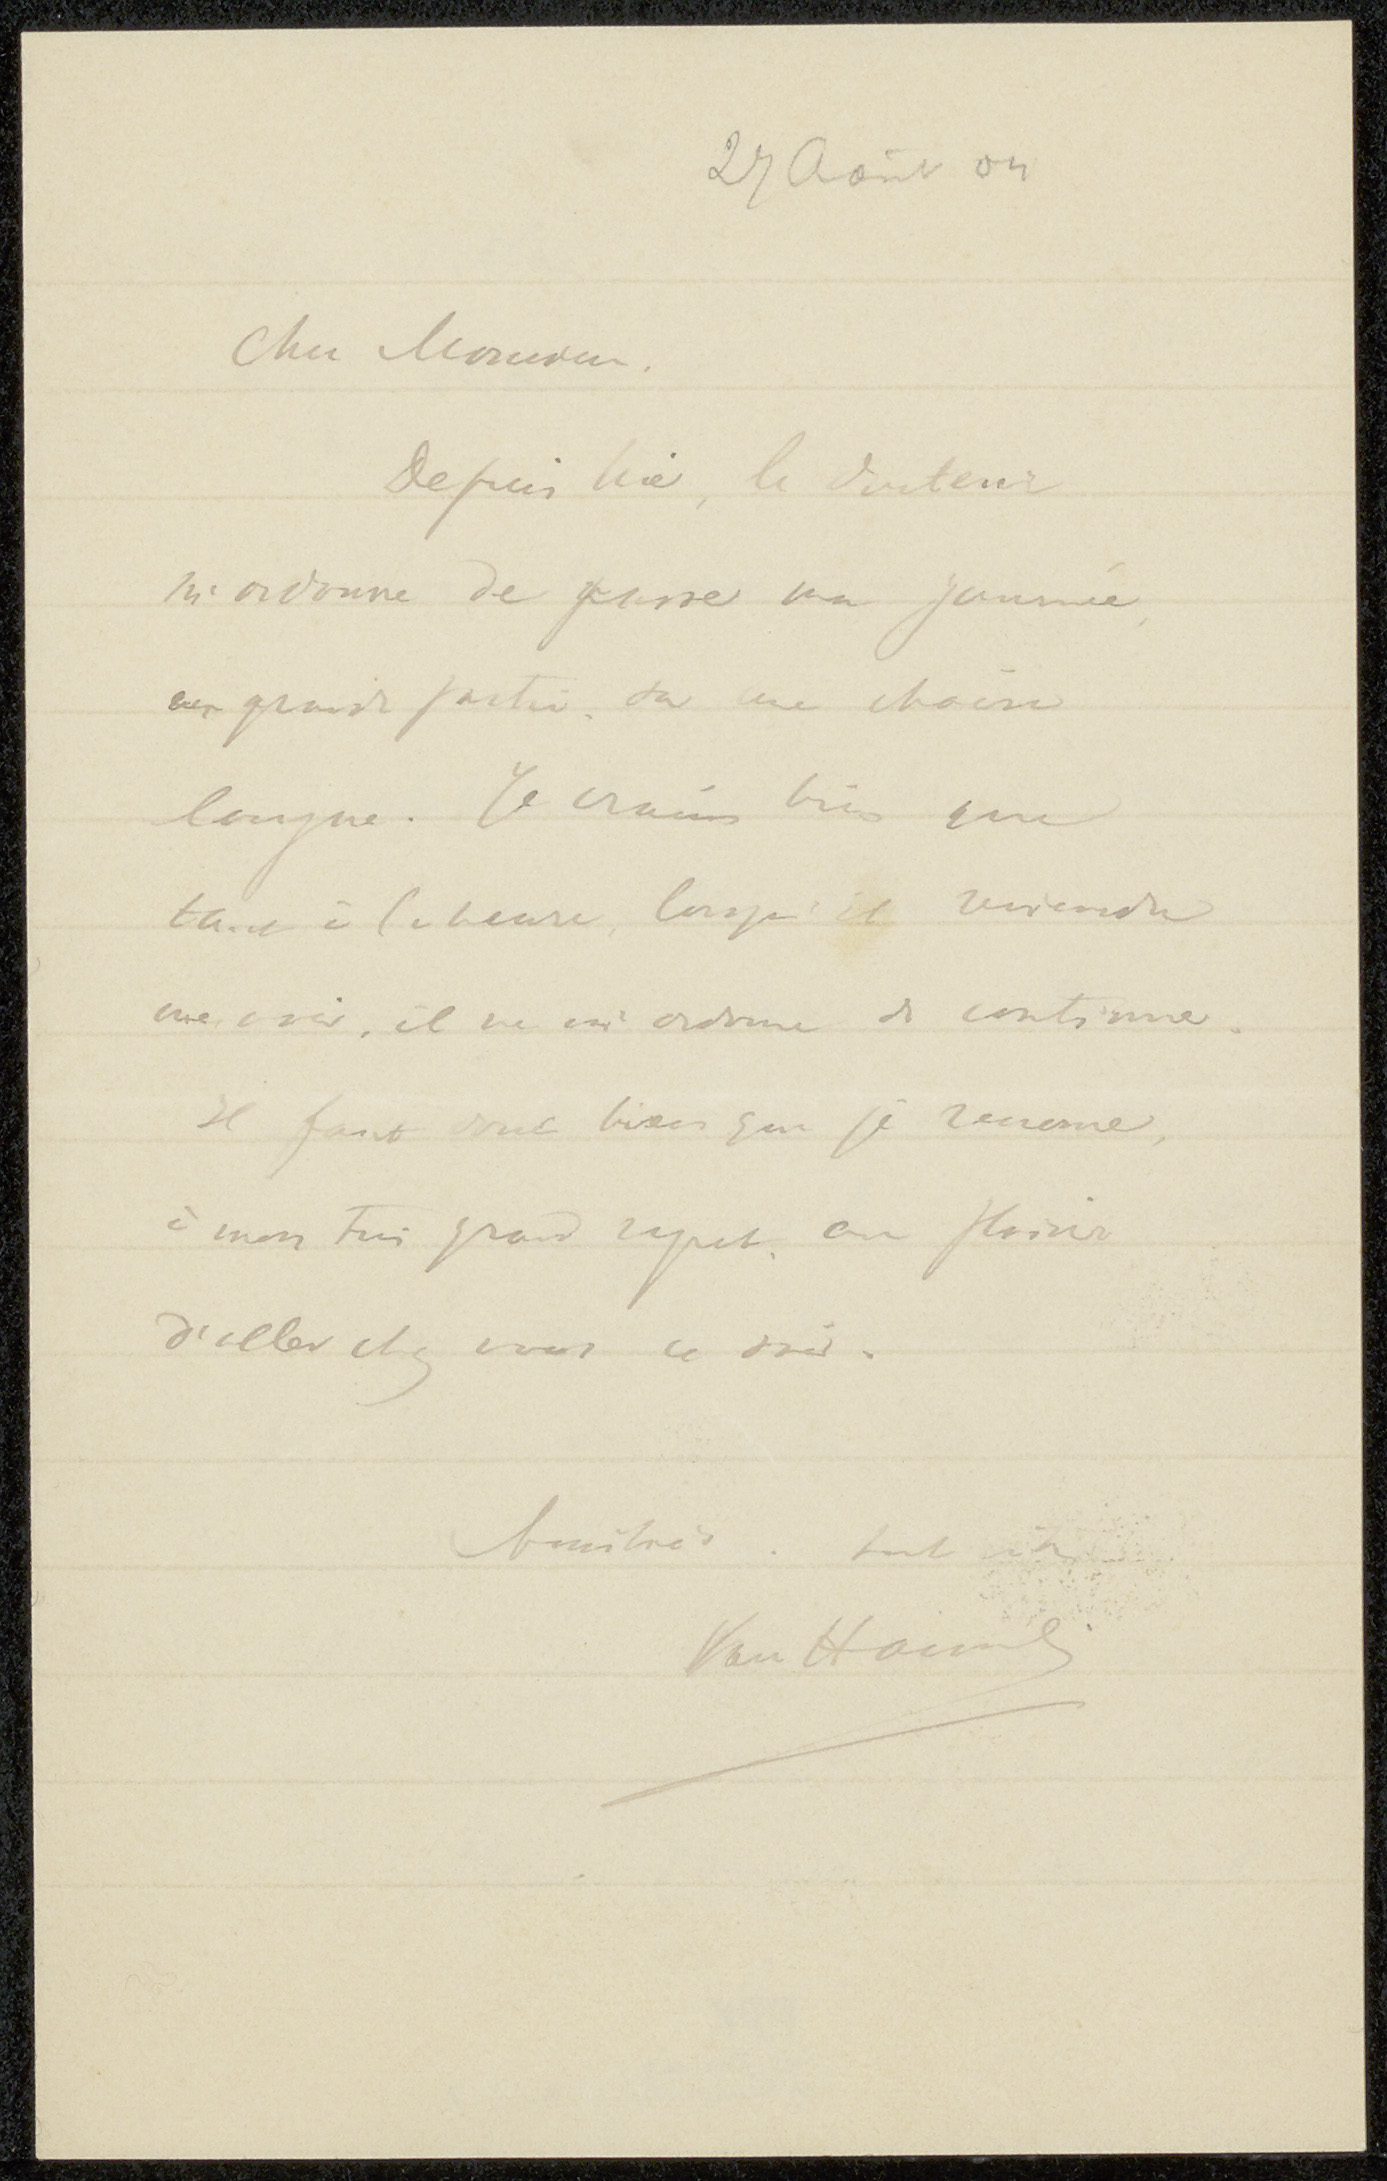 27 Août 04
Cher Monsieur.
Depuis hier, le docteur
m'ordonne de passer ma journée,
en grande partie, sur une chaise
longue. Je crains bien que
tout à l'heure, lorsqu'il reviendra
me voir, il ne m'ordonne de continuer.
Il faut donc bien que je renonce,
à mon très grand regret, au plaisir
d'aller chez vous ce soir.
Amitiés. tout
Van